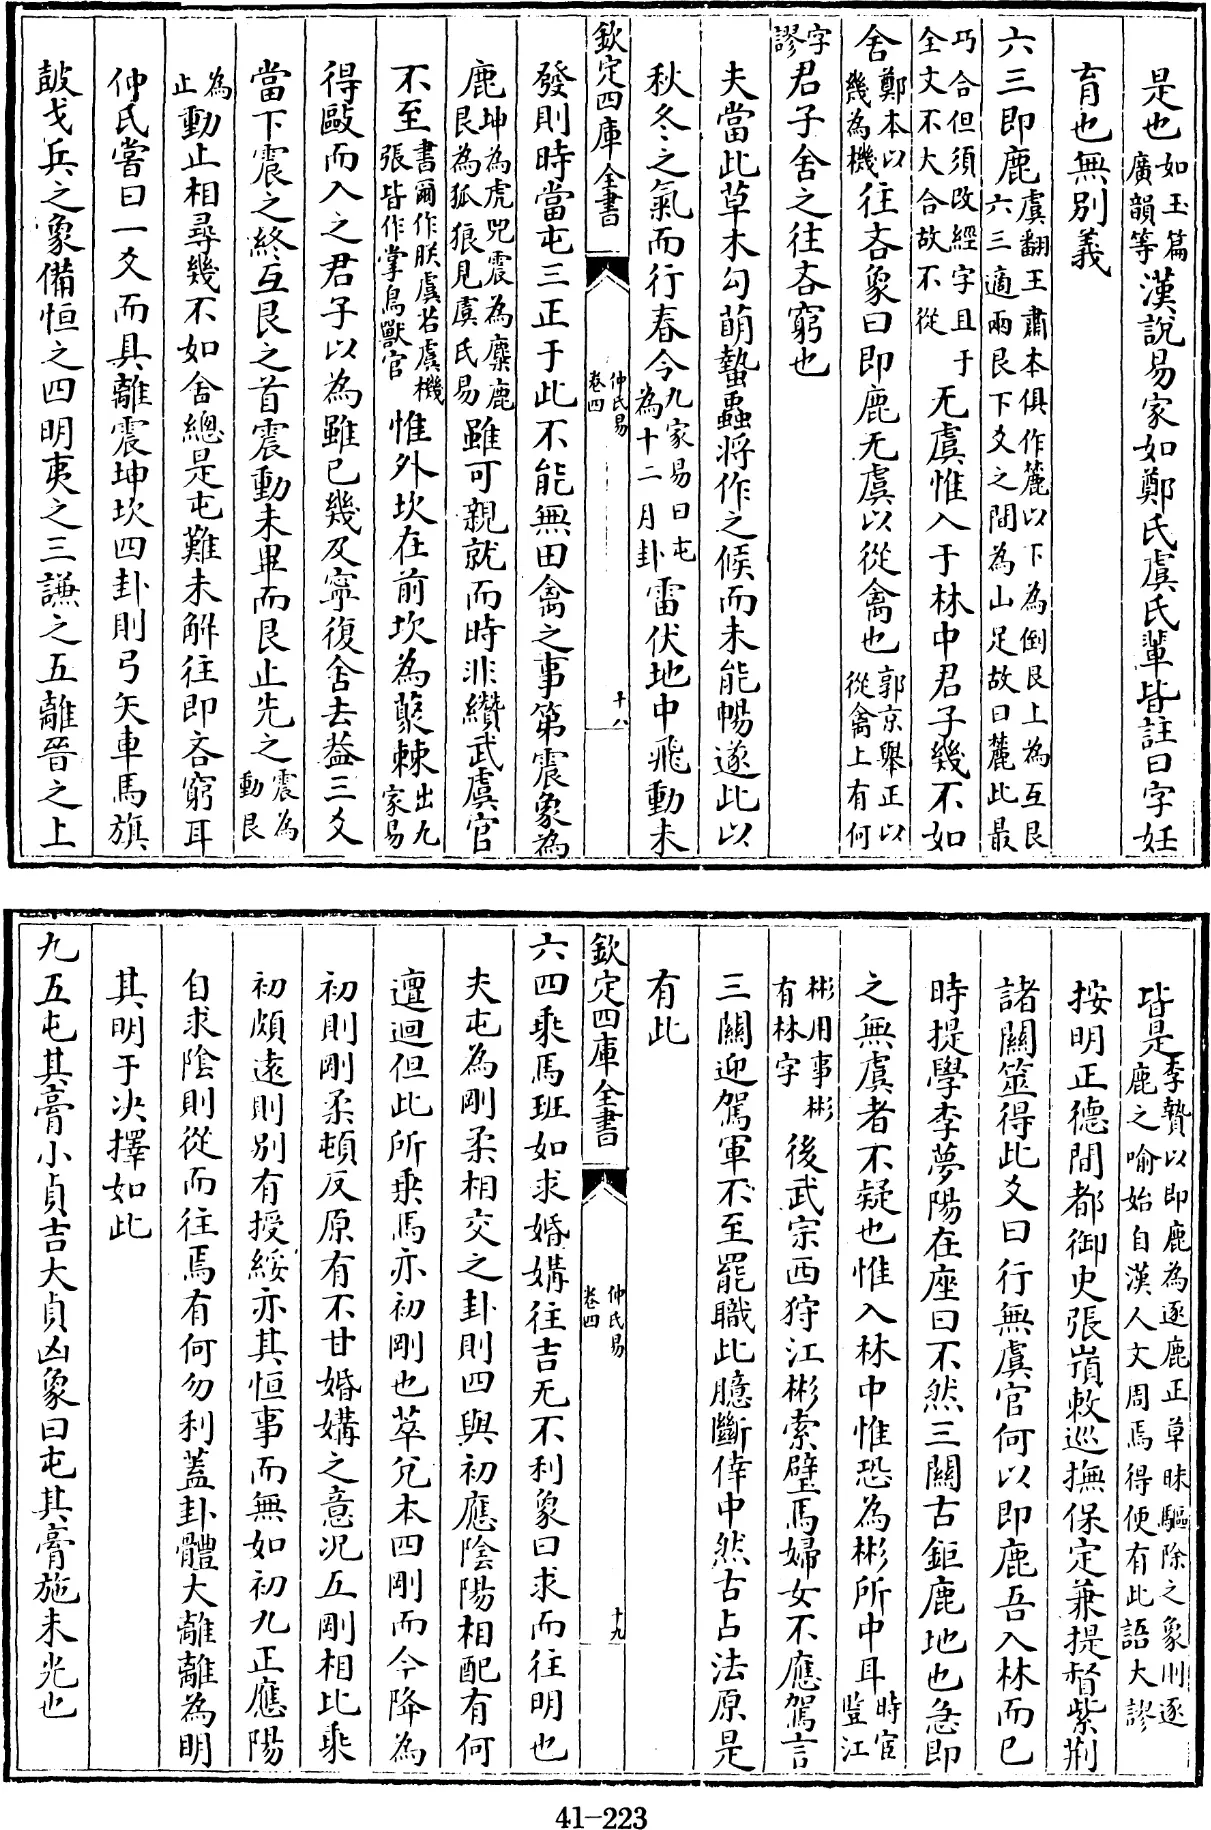 是也如玉篇廣韻等漢說易家如鄭氏虞氏輩皆註曰字妊
育也無別義
六三即鹿虞翻王肅本俱作麓以下為倒艮上為互艮六三適兩艮下爻之間為山足故曰麓此最
巧合但須改經字且于全文不大合故不從无虞惟入于林中君子幾不如
舍鄭本以幾為機往吝象曰即鹿无虞以從禽也郭京舉正以從禽上有何
字謬君子舍之往吝窮也
夫當此草木勾萌蟄蟲將作之候而未能暢遂此以
秋冬之氣而行春令九家易曰屯為十二月卦雷伏地中飛動未
欽定四庫全書
仲氏易
卷四
十八
發則時當屯三正于此不能無田禽之事第震象為
鹿坤為虎兕震為麋鹿艮為狐狼見虞氏易雖可親就而時非纘武虞官
不至書爾作朕虞若虞機張皆作掌鳥獸官惟外坎在前坎為蒺棘出九家易
得毆而入之君子以為雖已幾及寧復舍去益三爻
當下震之終互艮之首震動未畢而艮止先之震為動艮
為止動止相尋幾不如舍總是屯難未解往即吝窮耳
仲氏嘗曰一爻而具離震坤坎四卦則弓矢車馬旗
鼓戈兵之象備恒之四明夷之三謙之五離晉之上
皆是李贄以即鹿為逐鹿正草昧驅除之象則逐鹿之喻始自漢人文周焉得便有此語大謬
按明正德間都御史張嵿敕巡撫保定兼提督紫荆
諸關筮得此爻曰行無虞官何以即鹿吾入林而已
時提學李夢陽在座曰不然三關古鉅鹿地也急即
之無虞者不疑也惟入林中惟恐為彬所中耳時宦監江
彬用事彬有林字後武宗西狩江彬索璧馬婦女不應駕言
三關迎駕軍不至罷職此臆斷倖中然古占法原是
有此
欽定四庫全書
仲氏易
卷四
十九
六四乘馬班如求婚媾往吉无不利象曰求而往明也
夫屯為剛柔相交之卦則四與初應陰陽相配有何
邅迴但此所乘馬亦初剛也萃兌本四剛而今降為
初則剛柔頓反原有不甘婚媾之意况五剛相比乘
初頗遠則別有授綏亦其恒事而無如初九正應陽
自求陰則從而往焉有何勿利蓋卦體大離離為明
其明于决擇如此
九五屯其膏小貞吉大貞凶象曰屯其膏施未光也
41-223